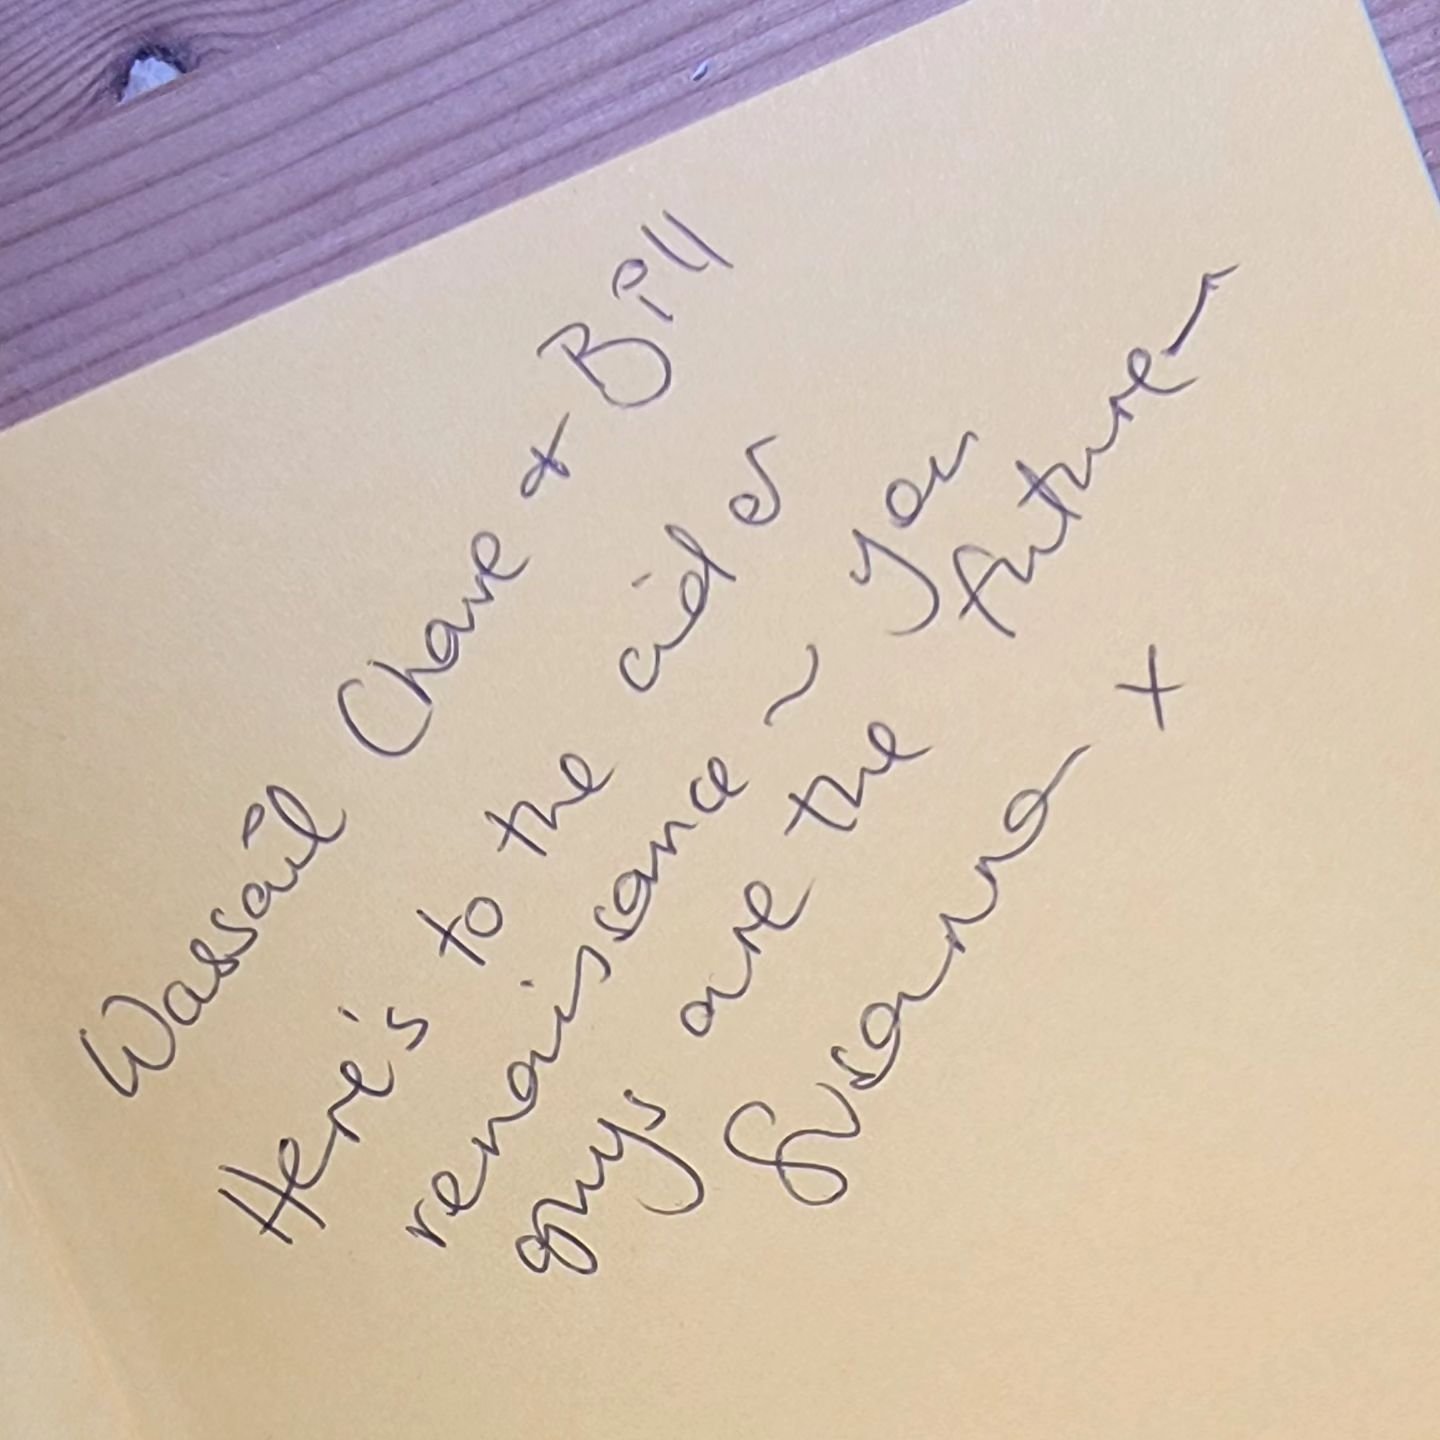 Wassail Chave + Bill
Here's to the cider
renaissance ~ you
guys are the future -
Susanna x